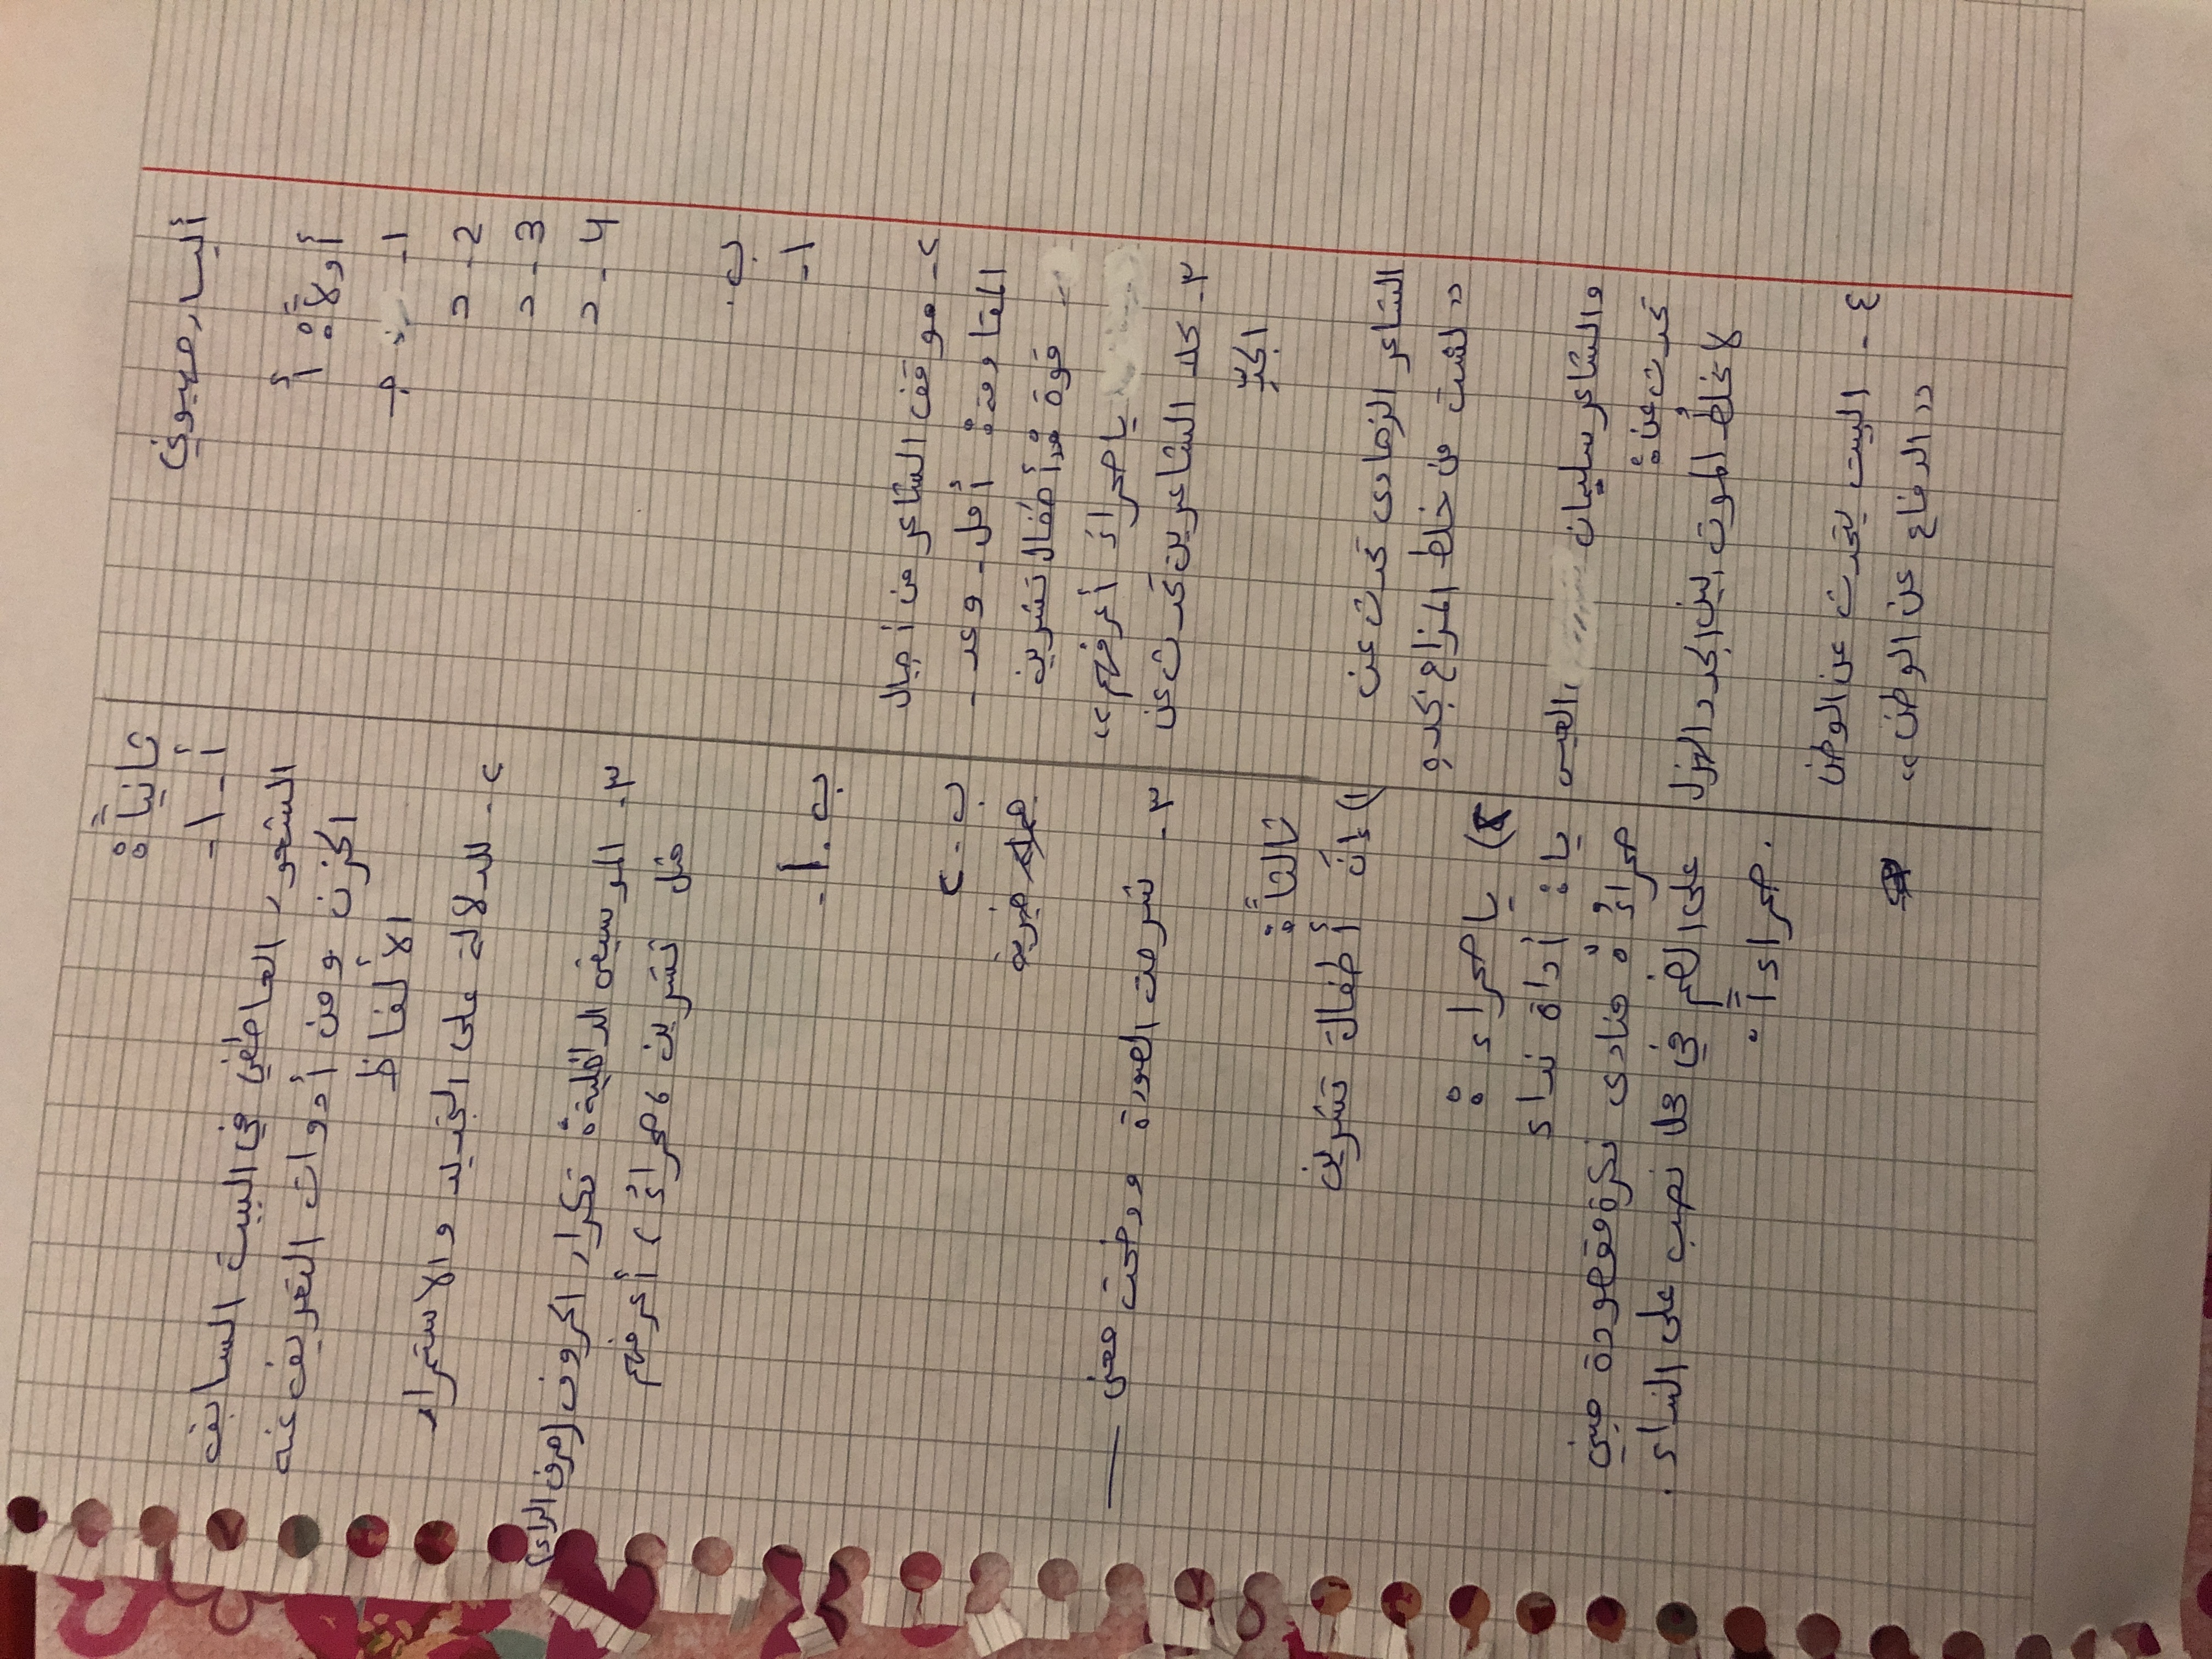 أليسار صهيوني
أولاً: أ
1- جـ
2- د
3- د
4- د
ب.
1-
٢- موقف الشاعر من أجيال
المقاومة: أمل - وعد -
قوة أطفال تشرين
يا صحراءُ أعرفهم"
٣- كلا الشاعرين تحدث عن
الجدّ
الشاعر الزهادى تحدث عن
"لشت من خلط المزاح بجدهِ
والشاعر سليمان العيسى
تحدث عن:
لا تخلطُ الموت بين الجد د الهزل
٤- البيت يتحدث عن الوطن
"الدفاع عن الوطن"
ثانياً:
أ-١-
الشعور العاطفي في البيت السابق
الحزن ومن أدوات التعريف عنه
الألفاظ
٢- للدلالة على التجديد والاستمرار
٣- الموسيقى الداخلية: تكرار الحروف (حرف الراء)
مثل تشرين، صحراءُ، أعرفهم
ب-١-
ب-٢
جملة خبرية
٣- شرحت الصورة ووضحت معنى —
ثالثاً:
١) إنّ أطفالَ تشرين
٢) يا صحراء:
يا: أداة نداء
صحراءُ: منادى نكرة مقصودة مبني
على الضم في محلا نصب على النداء.
صحراءاً:.